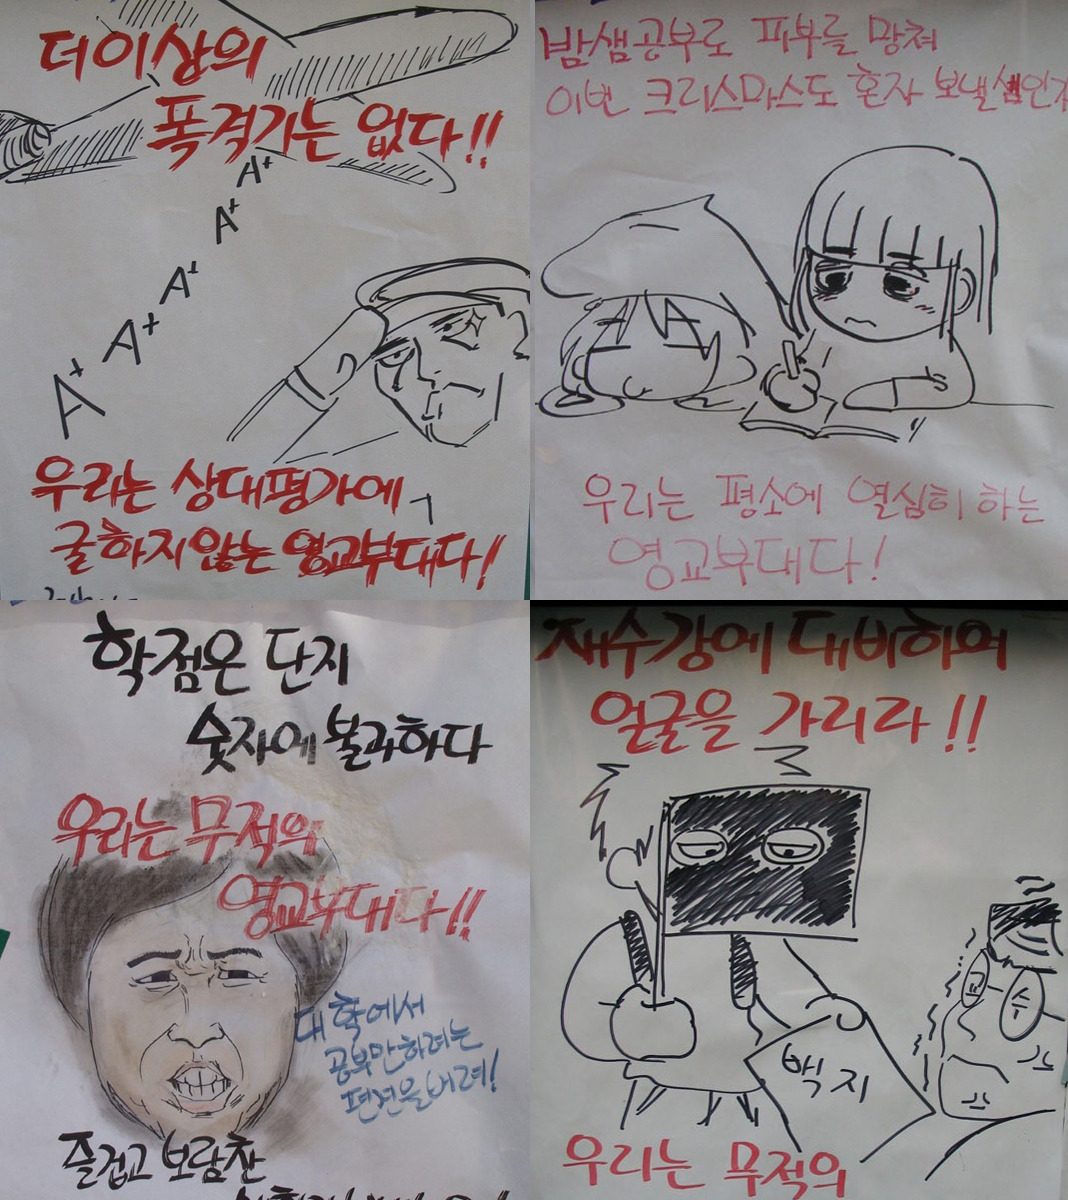 더이상의
폭격기는 없다!!
A+
A+
A+
A+
A+
우리는 상대평가에
굴하지않는 영교부대다!
밤샘공부로 피부를 망쳐
이번 크리스마스도 혼자 보낼샘인가
우리는 평소에 열심히 하는
영교부대다!
학점은 단지
숫자에 불과하다
우리는 무적의
영교부대다!!
대학에서
공부만하려는
편견을버려!
즐겁고 보람찬
재수강에 대비하여
얼굴을 가리라!!
백지
우리는 무적의